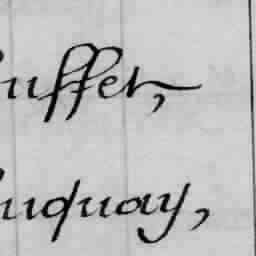 uffet,
uquay,